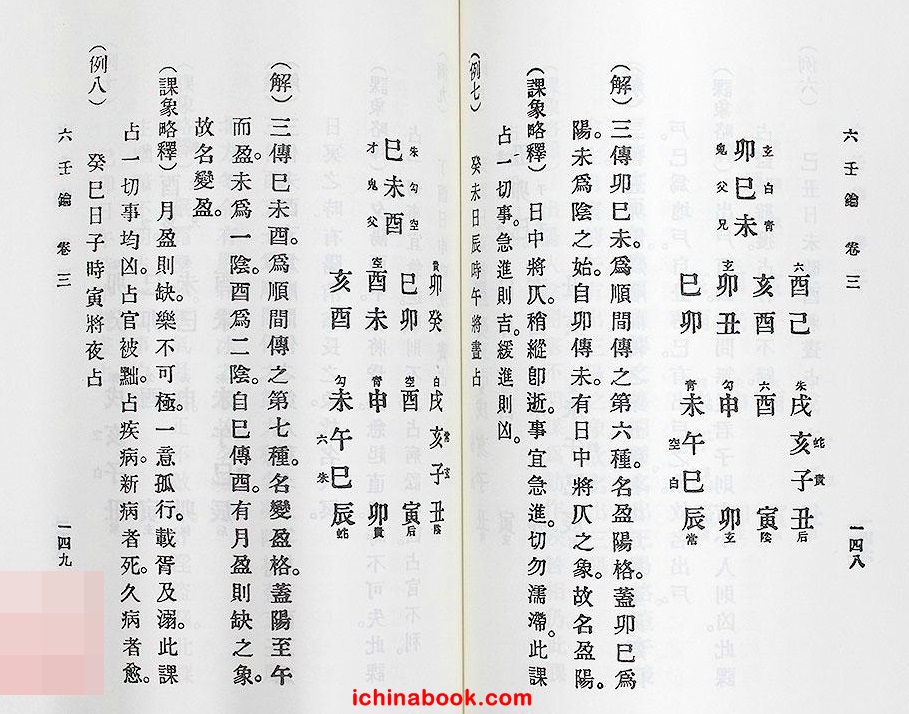 六壬鑰 卷三
一四八
玄 白 青
卯巳未
鬼 父 兄
六酉己
亥酉
玄卯丑
巳卯
朱戌亥蛇子貴丑后
六酉 寅陰
勾申 卯玄
青未午空巳白辰常
（解）三傳卯巳未。爲順間傳之第六種。名盈陽格。蓋卯巳爲
陽。未爲陰之始。自卯傳未。有日中將仄之象。故名盈陽。
（課象略釋）日中將仄。稍縱卽逝。事宜急進。切勿濡滯。此課
占一切事。急進則吉。緩進則凶。
（例七） 癸未日辰時午將晝占
朱 勾 空
巳未酉
才 鬼 父
貴卯癸
巳卯
空酉未
亥酉
白戌亥常子玄丑陰
空酉 寅后
青申 卯貴
勾未午六巳朱辰蛇
（解）三傳巳未酉。爲順間傳之第七種。名變盈格。蓋陽至午
而盈。未爲一陰。酉爲二陰。自巳傳酉。有月盈則缺之象。
故名變盈。
（課象略釋）月盈則缺。樂不可極。一意孤行。載胥及溺。此課
占一切事均凶。占官被黜。占疾病。新病者死。久病者愈。
（例八） 癸巳日子時寅將夜占
六壬鑰 卷三
一四九
ichinabook.com